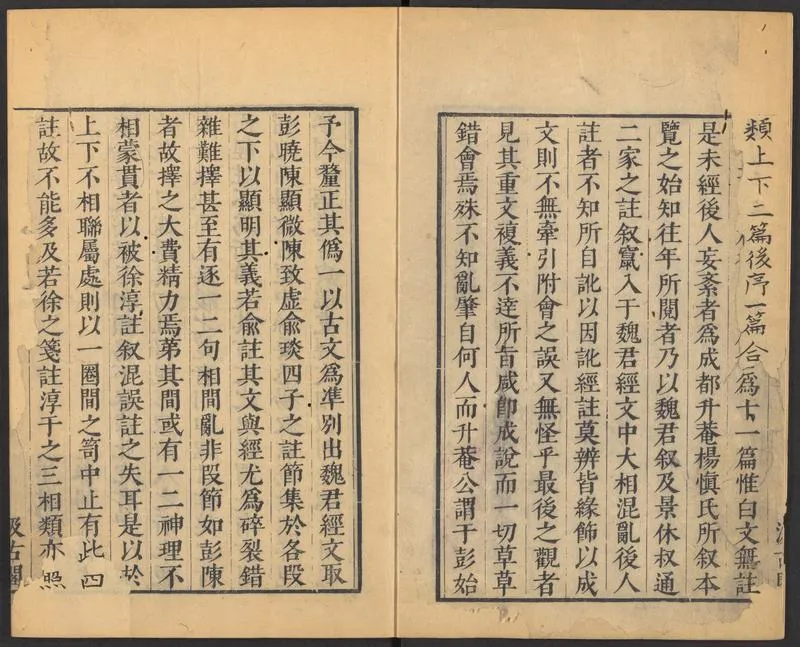 類上下二篇後序一篇合爲十一篇惟白文無註
是未經後人妄紊者爲成都升菴楊愼氏所叙本
覽之始知往年所閱者乃以魏君叙及景休叔通
二家之註叙竄入于魏君經文中大相混亂後人
註者不知所自訛以因訛經註莫辨皆緣飾以成
文則不無牽引附會之誤又無怪乎最後之觀者
見其重文複義不達所旨咸卽成說而一切草草
錯會焉殊不知亂肇自何人而升菴公謂于彭始
予今釐正其僞一以古文爲準別出魏君經文取
彭曉陳顯微陳致虛俞琰四子之註節集於各段
之下以顯明其義若俞註其文與經尤爲碎裂錯
雜難擇甚至有逐一二句相間亂非段節如彭陳
者故擇之大費精力焉第其間或有一二神理不
相蒙貫者以被徐淳註叙混誤註之失耳是以於
上下不相聯屬處則以一圈間之笥中止有此四
註故不能多及若徐之箋註淳于之三相類亦照
汲古閣